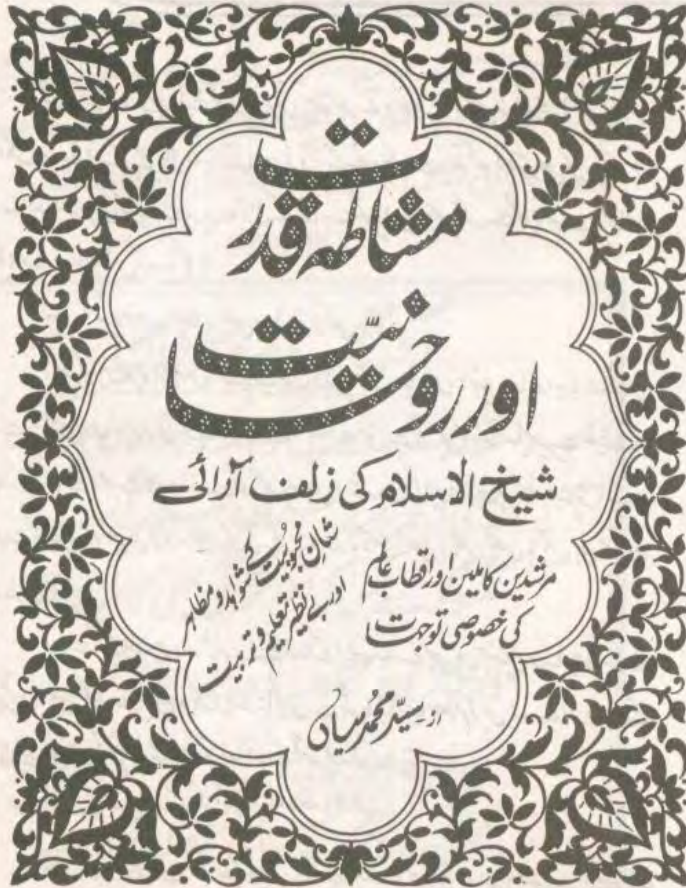 مشاطہ قدرت
اور روحانیت
شیخ الاسلام کی زلف آرائے
مرشدین کاملین اور اقطاب عالم
کی خصوصی توجہات
شان محبوبیت کے شواہد و مظاہر
اور بے نظیر تعلیم و تربیت
از سید محمد میاں